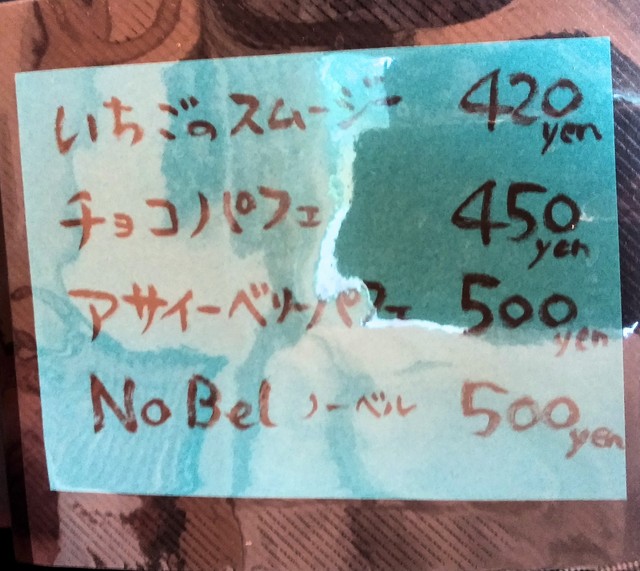 いちごのスムージー 420 yen
チョコパフェ 450 yen
アサイーベリーパフェ 500 yen
NoBel ノーベル 500 yen